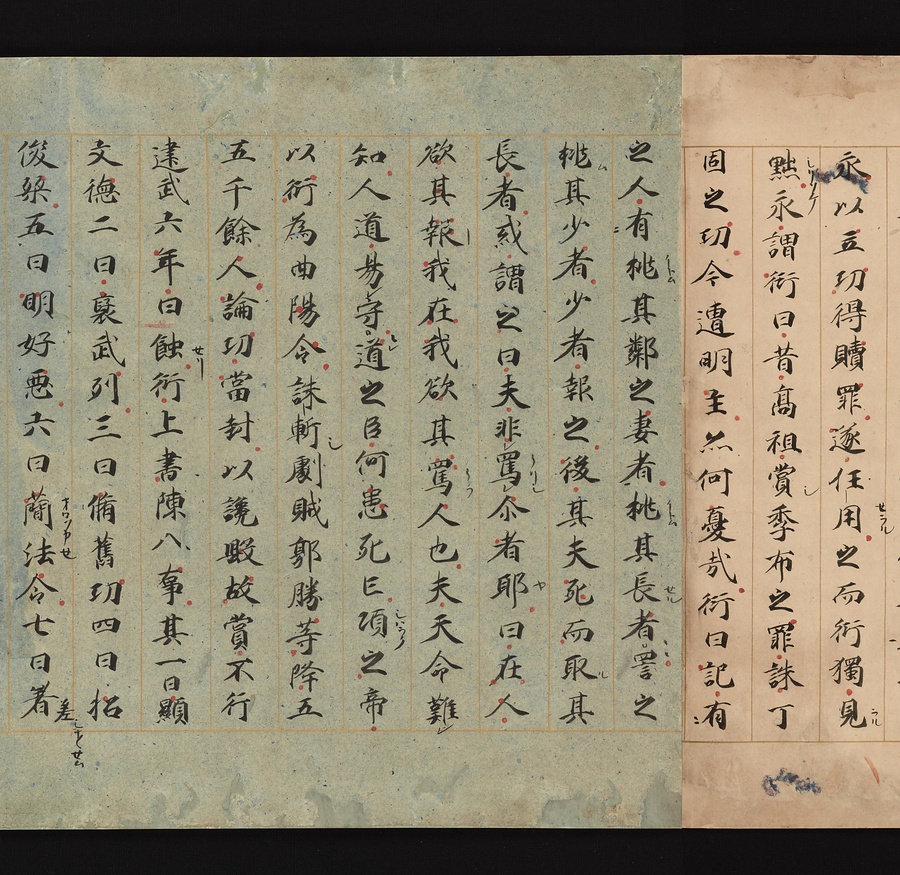 永以立功得贖罪遂任用之而衍獨見
黜永謂衍曰昔高祖賞季布之罪誅丁
固之功今遭明主亦何憂哉衍曰記有
之人有挑其鄰之妻者挑其長者詈之
挑其少者少者報之後其夫死而取其
長者或謂之曰夫非罵尒者耶曰在人
欲其報我在我欲其罵人也夫天命難
知人道易守道之臣何患死亡頃之帝
以衍為曲陽令誅斬劇賊郭勝等降五
五千餘人論功當封以讒毀故賞不行
建武六年日蝕衍上書陳八事其一曰顯
文德二曰襃武列三曰脩舊功四曰招
俊桀五曰明好惡六曰蕳法令七曰著